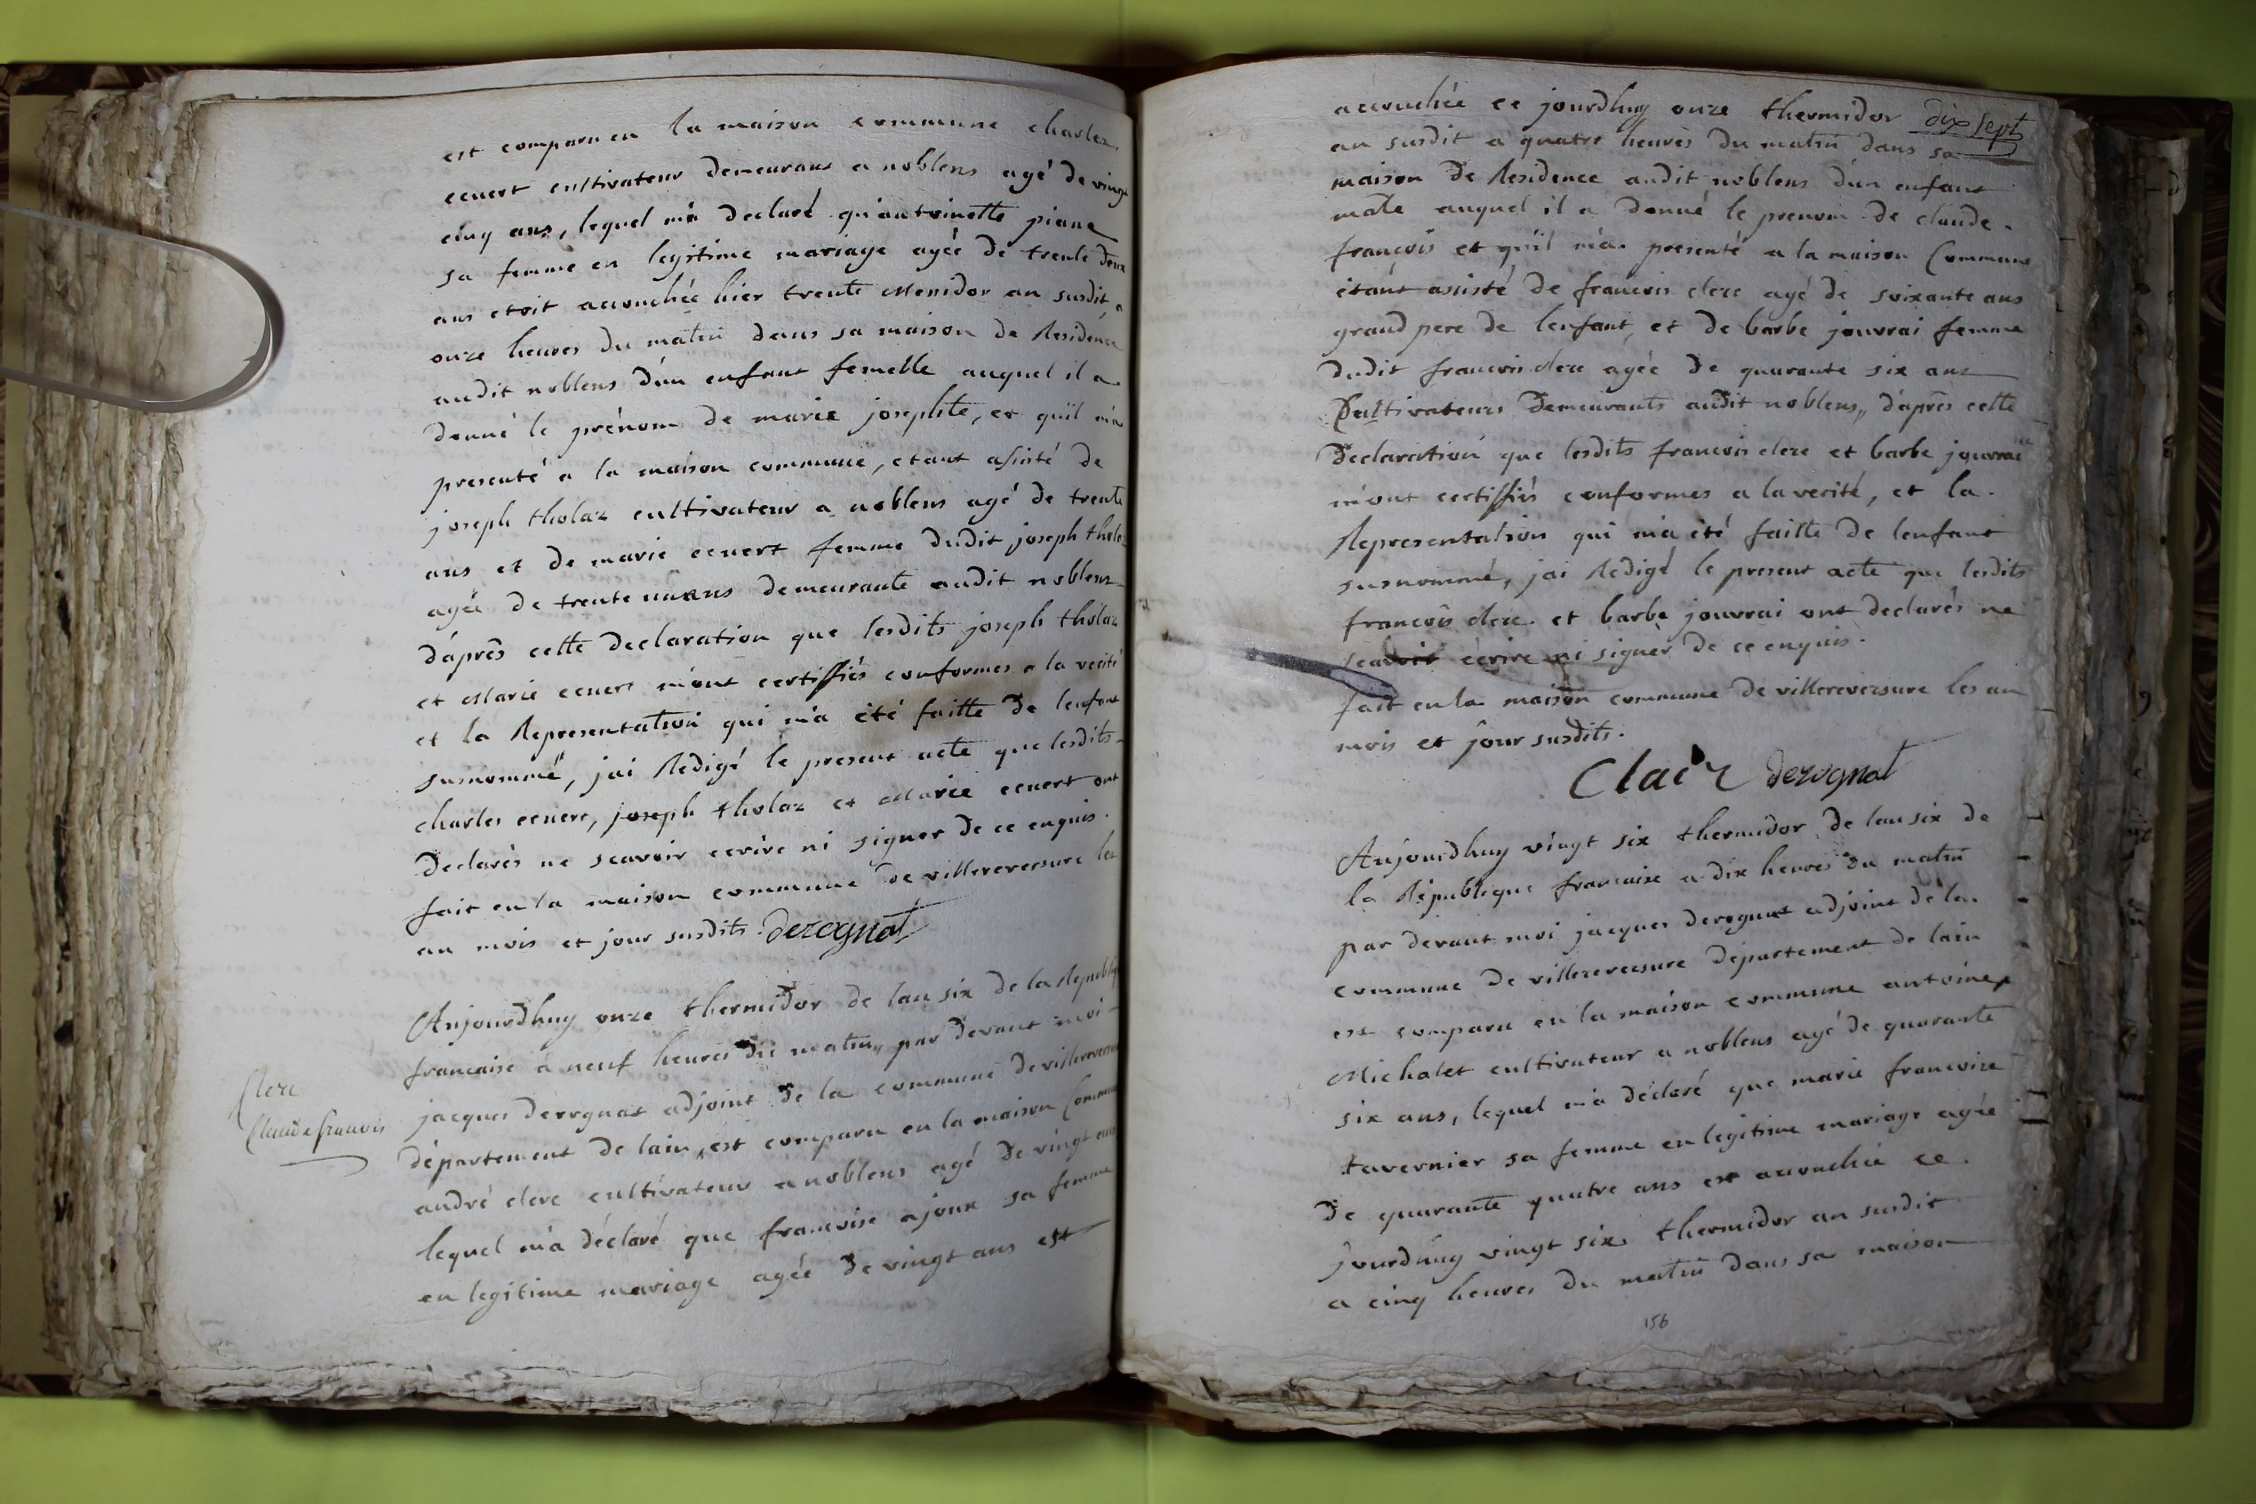 est comparu en la maison commune charles
ecuert cultivateur demeurant a noblens agé de vingt
cinq ans, lequel m'a declaré qu'antoinette piane
sa femme en legitime mariage agée de trente deux
ans etoit accouchée hier trente Messidor an susdit a
onze heures du matin dans sa maison de Residence
audit noblens d'un enfant femelle auquel il a
donné le prénom de marie josephte, et qu'il m'a
presenté a la maison commune, etant assisté de
joseph tholaz cultivateur a noblens agé de trente
ans et de marie ecuert femme dudit joseph tholaz
agée de trente un ans demeurante audit noblens
d'après cette declaration que lesdits joseph tholaz
et Marie ecuert m'ont certiffiés conformes a la verité
et la Representation qui m'a été faitte de lenfant
susnommé, jai Redigé le present acte que lesdits
charles ecuert, joseph tholaz et Marie ecuert ont
Declarés ne scavoir ecrire ni signer de ce enquis.
fait en la maison commune de villereversure les
an mois et jour susdits. derognat
Aujourdhuy onze thermidor de lan six de la Republique
francaise à neuf heures du matin, par devant moi
jacques derognat adjoint de la commune de villereversure
département de lain, est comparu en la maison Commune
Clerc
Claude francois
andré clerc cultivateur a noblens agé de vingt ans
lequel m'a déclaré que francoise ajoux sa femme
en legitime mariage agée de vingt ans est
dix sept
accouchée ce jourdhuy onze thermidor
an susdit a quatre heures du matin dans sa
maison de Residence audit noblens d'un enfant
male auquel il a donné le prenom de claude
françois et qu'il m'a presenté a la maison Commune
étant assisté de francois clerc agé de soixante ans
grand pere de lenfant, et de barbe jouvrai femme
dudit francois clerc agée de quarante six ans
Cultivateurs demeurants audit noblens, d'après cette
Declaration que lesdits francois clerc et barbe jouvrai
m'ont certiffiés conformes a la verité, et la
Representation qui m'a été faitte de lenfant
susnommé, jai Redigé le present acte que lesdits
francois clerc et barbe jouvrai ont declarés ne
scavoir écrire ni signer de ce enquis.
fait en la maison commune de villereversure les an
mois et jour susdits.
Clair derognat
Aujourdhuy vingt six thermidor de lan six de
la République francaise a dix heures du matin
par devant moi jacques derognat adjoint de la
commune de villereversure département de lain
est comparu en la maison commune antoine
Michalet cultivateur a noblens agé de quarante
six ans, lequel m'a déclaré que marie francoise
tavernier sa femme en legitime mariage agée
de quarante quatre ans est accouchée ce
jourdhuy vingt six thermidor an susdit
a cinq heures du matin dans sa maison
156